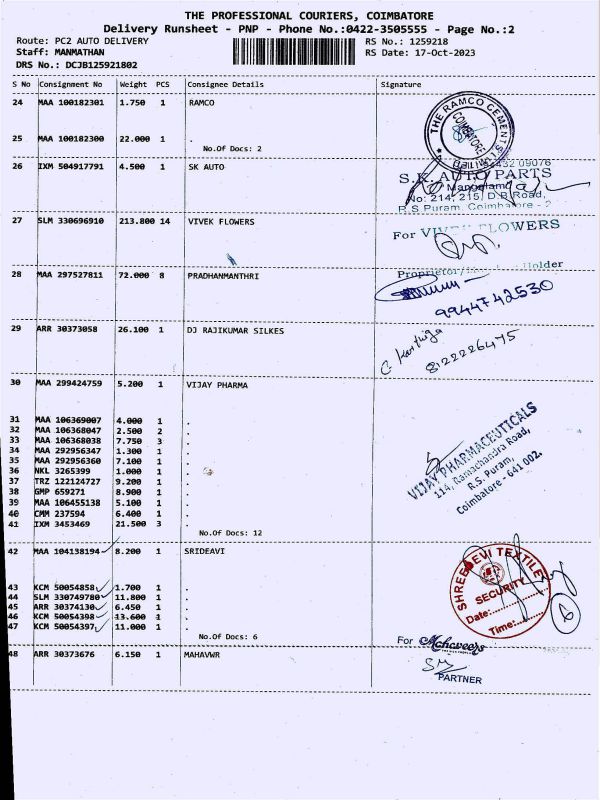 THE PROFESSIONAL COURIERS, COIMBATORE
Delivery Runsheet - PNP - Phone No.:0422-3505555 - Page No.:2
Route: PC2 AUTO DELIVERY RS No.: 1259218
Staff: MANMATHAN RS Date: 17-Oct-2023
DRS No.: DCJB125921802
S No Consignment No Weight PCS Consignee Details Signature
24 MAA 100182301 1.750 1 RAMCO
THE RAMCO CEMENTS LIMITED
COIMBATORE
25 MAA 100182300 22.000 1 .
No.Of Docs: 2
26 IXM 504917791 4.500 1 SK AUTO
432 09076
S.K. AUTO PARTS
Mangalam
No: 214, 215, D.B.Road,
R.S Puram, Coimbatore - 2
27 SLM 330696910 213.800 14 VIVEK FLOWERS
For VIVEK FLOWERS
Proprietor/ Holder
28 MAA 297527811 72.000 8 PRADHANMANTHRI
9944742530
29 ARR 30373058 26.100 1 DJ RAJIKUMAR SILKES
8122226475
30 MAA 299424759 5.200 1 VIJAY PHARMA
31 MAA 106369007 4.000 1 .
32 MAA 106368047 2.500 2 .
33 MAA 106368038 7.750 3 .
34 MAA 292956347 1.300 1 .
35 MAA 292956360 7.100 1 .
36 NKL 3265399 1.000 1 .
37 TRZ 122124727 9.200 1 .
38 GMP 659271 8.900 1 .
39 MAA 106455138 5.100 1 .
40 CMM 237594 6.400 1 .
41 IXM 3453469 21.500 3 .
No.Of Docs: 12
VIJAY PHARMACEUTICALS
114, Ramachandra Road,
R.S. Puram,
Coimbatore - 641 002.
42 MAA 104138194 8.200 1 SRIDEAVI
43 KCM 50054858 1.700 1 .
44 SLM 330749780 11.800 1 .
45 ARR 30374130 6.450 1 .
46 KCM 50054398 13.600 1 .
47 KCM 50054397 11.000 1 .
No.Of Docs: 6
SHREE DEVI TEXTILE
SECURITY
Date:
Time:
6
48 ARR 30373676 6.150 1 MAHAVWR
For Mahaveers
PARTNER